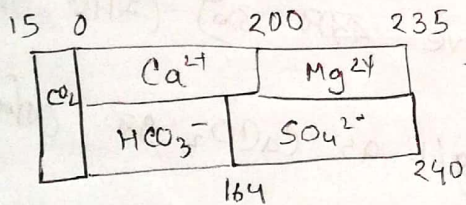 15 0 200 235
CO2 Ca2+ Mg2+
HCO3- SO42-
164 240